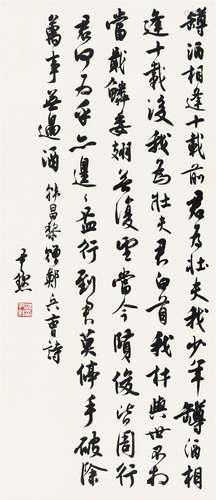 罇酒相逢十載前君為壯夫我少年罇酒相
逢十載後我為壯夫君白首我材與世不相
當戢鱗委翅無復望當今賢俊皆周行
君何為乎亦遑遑盃行到君莫停手破除
萬事無過酒 韓昌黎贈鄭兵曹詩
尹默